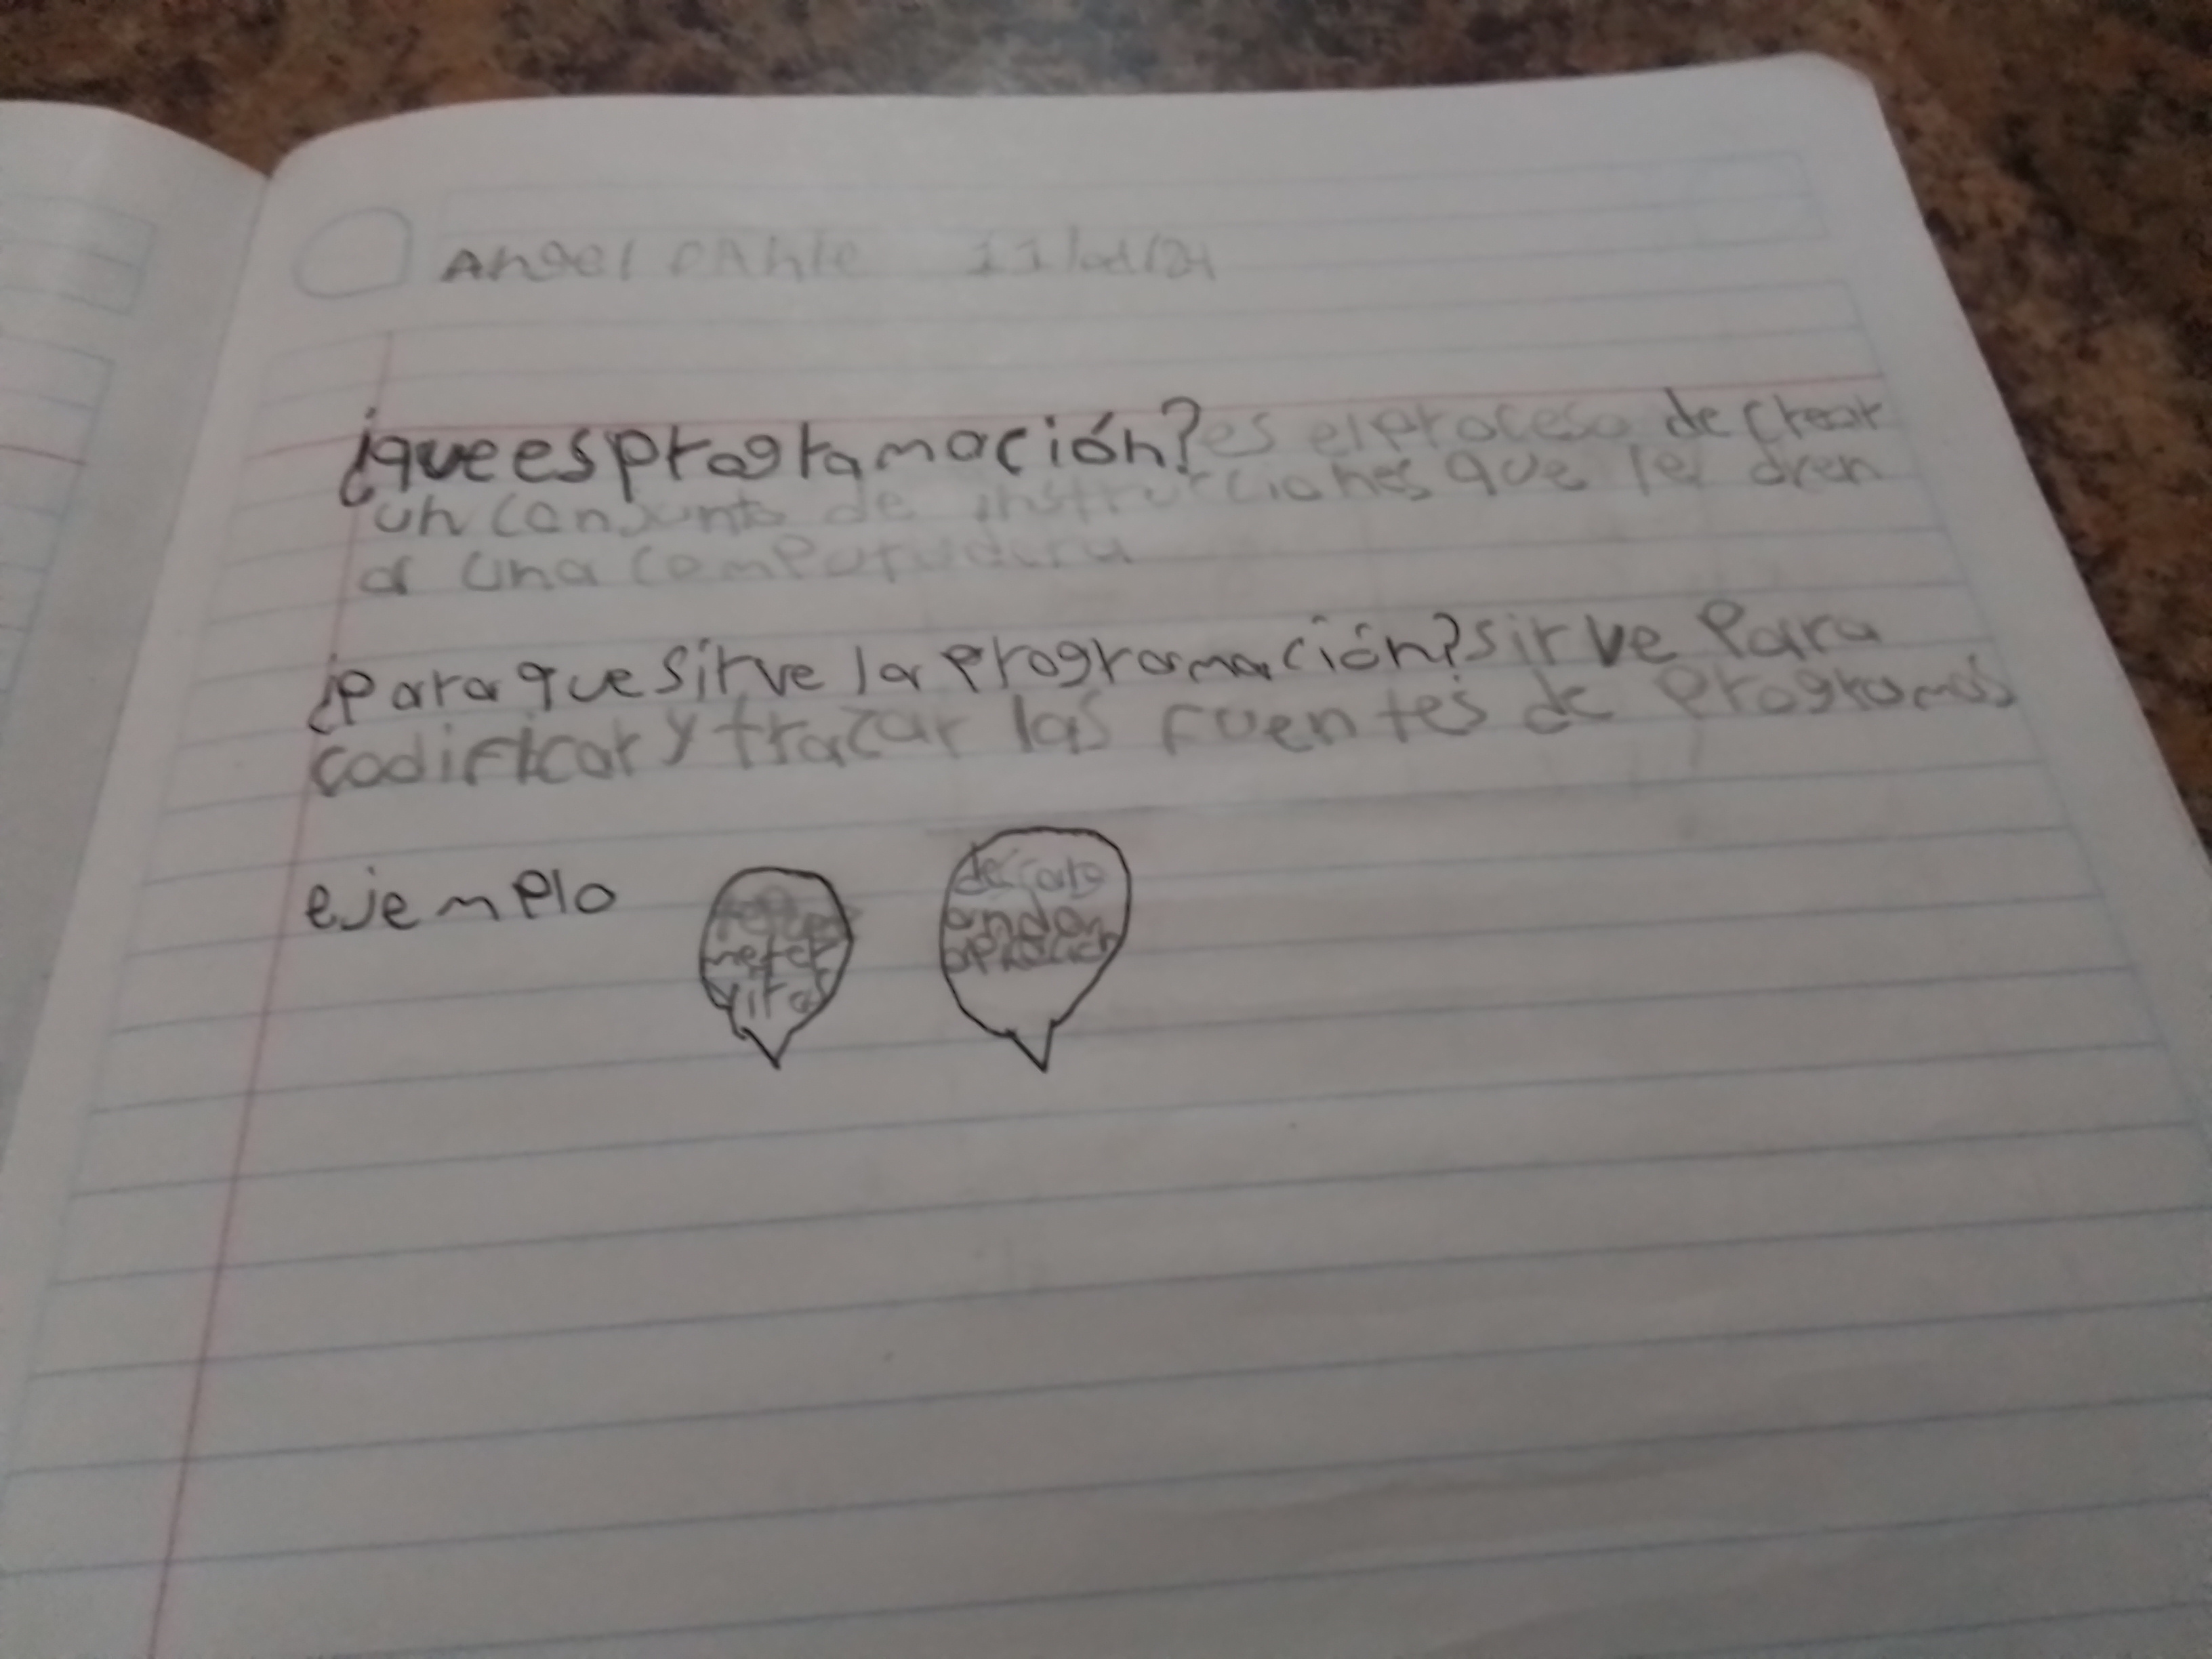 Angel
¿que es programación? es el proceso de crear
un conjunto de instrucciones que le dren
a una computadora
¿para que sirve la programación? sirve para
codificar y trazar las fuentes de programas
ejemplo
meter